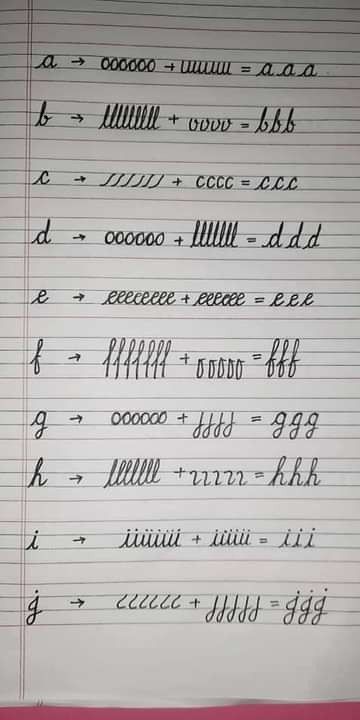 a → oooooo + uuuuu = a a a
b → llllllll + vvvv = bbb
c → ////// + cccc = ccc
d → oooooo + llllll = d d d
e → eeeeeeee + eeeeee = e e e
f → fffffff + ooooo = fff
g → oooooo + jjjj = ggg
h → lllllll + 22222 = hhh
i → iiiiiii + iiiii = i i i
j → cccccc + jjjjj = jjj